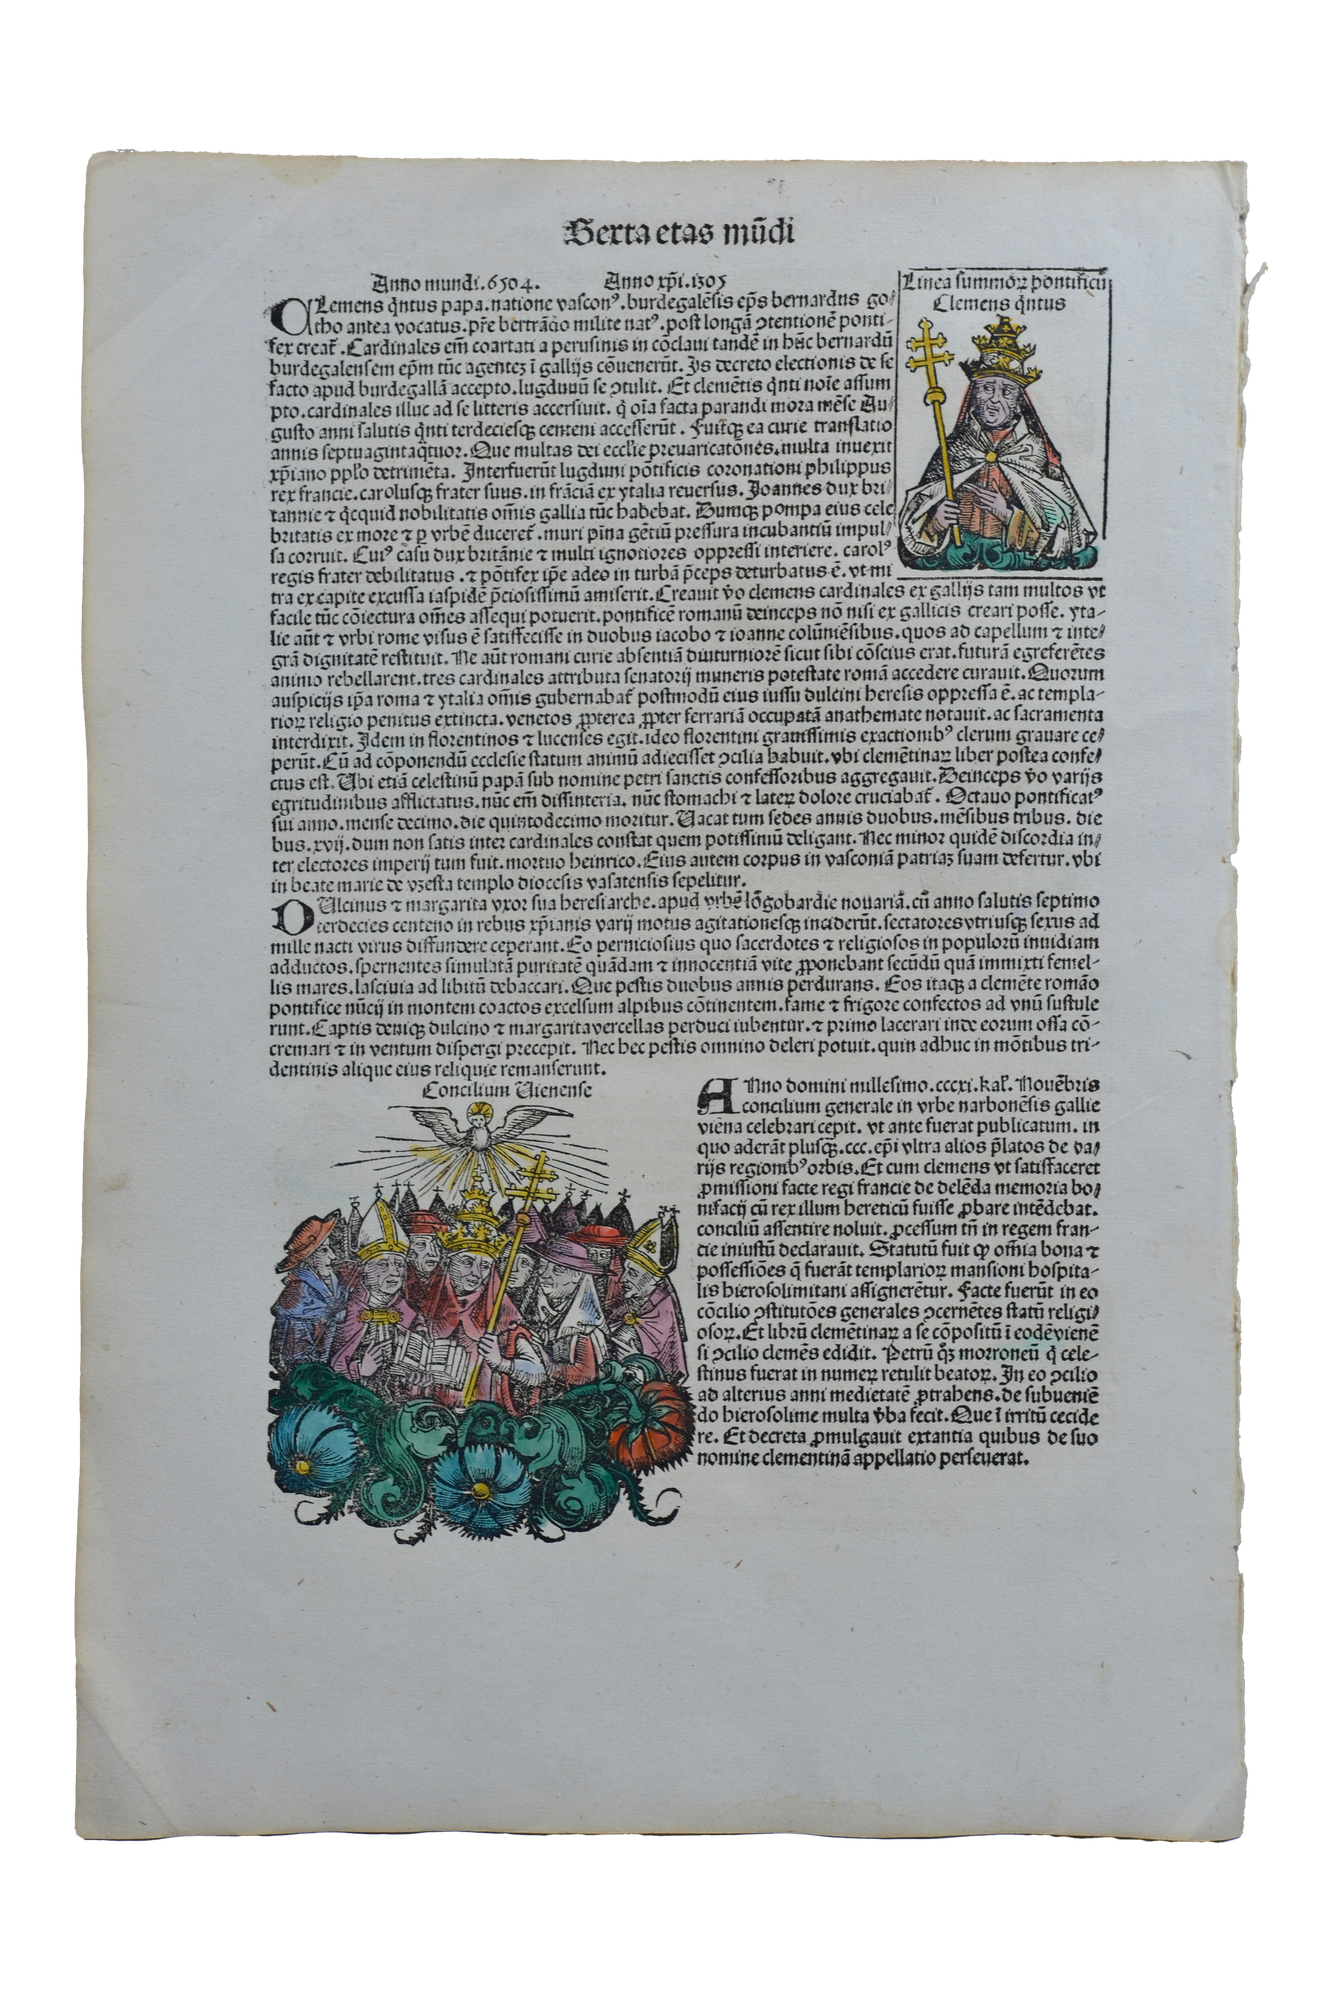 Sexta etas mūdi
Anno mundi .6504. Anno xp̄i .1305
Linea summoꝝ pontificū
Clemens q̄ntus
CLemens q̄ntus papa.natione vasconꝰ.burdegalēsis ep̄s bernardus go⸗
tho antea vocatus.pr̄e bertrādo milite natꝰ.post longā ↄtentionē ponti-
fex creat̄.Cardinales em̄ coartati a perusinis in cōclaui tandē in hūc bernardū
burdegalensem ep̄m tūc agentez ī gallijs cōuenerūt. Is decreto electionis de se
facto apud burdegallā accepto.lugdunū se ↄtulit. Et clemētis q̄nti noīe assum
pto.cardinales illuc ad se litteris accersiuit. q̄ oīa facta parandi mora mēse Au⸗
gusto anni salutis q̄nti terdeciesqꝫ centeni accesserūt. Fuitqꝫ ea curie translatio
annis septuagintaq̄tuor. Que multas dei eccl̄ie preuaricatones.multa inuexit
xp̄iano pp̄lo detrimēta. Interfuerūt lugduni pōtificis coronationi philippus
rex francie.carolusqꝫ frater suus.in frāciā ex ytalia reuersus. Joannes dux bri⸗
tannie ⁊ q̄cquid nobilitatis om̄is gallia tūc habebat. Dumqꝫ pompa eius cele
britatis ex more ⁊ ꝑ vrbē duceret̄. muri pīna gētiū pressura incubantiū impul⸗
sa corruit. Cuiꝰ casu dux britānie ⁊ multi ignotiores oppressi interiere. carolꝰ
regis frater debilitatus .⁊ pōtifex ip̄e adeo in turbā p̄ceps deturbatus ē. vt mi
tra ex capite excussa iaspidē p̄ciosissimū amiserit. Creauit v̄o clemens cardinales ex gallijs tam multos vt
facile tūc cōiectura om̄es assequi potuerit.pontificē romanū deinceps nō nisi ex gallicis creari posse. yta-
lie aūt ⁊ vrbi rome visus ē satisfecisse in duobus iacobo ⁊ ioanne colūniēsibus.quos ad capellum ⁊ inte⸗
grā dignitatē restituit. Ne aūt romani curie absentiā diuturniorē sicut sibi cōscius erat.futurā egreferētes
animo rebellarent.tres cardinales attributa senatorij muneris potestate romā accedere curauit. Quorum
auspicijs ip̄a roma ⁊ ytalia om̄is gubernabat̄ postmodū eius iussu dulcini heresis oppressa ē. ac templa-
rioꝝ religio penitus extincta.venetos ꝓpterea ꝓpter ferrariā occupatā anathemate notauit.ac sacramenta
interdixit. Idem in florentinos ⁊ lucenses egit.ideo florentini grauissimis exactionibꝰ clerum grauare ce⸗
perūt. Cū ad cōponendū ecclesie statum animū adiecisset ↄcilia habuit.vbi clemētinaꝝ liber postea confe⸗
ctus est. Ubi etiā celestinū papā sub nomine petri sanctis confessoribus aggregauit. Deinceps v̄o varijs
egritudinibus afflictatus.nūc em̄ dissinteria. nūc stomachi ⁊ lateꝝ dolore cruciabat̄. Octauo pontificatꝰ
sui anno.mense decimo.die quintodecimo moritur. Uacat tum sedes annis duobus.mēsibus tribus. die
bus.xvij.dum non satis inter cardinales constat quem potissimū deligant. Nec minor quidē discordia in⸗
ter electores imperij tum fuit.mortuo heinrico. Eius autem corpus in vasconiā patriaꝫ suam defertur.vbi
in beate marie de vzesta templo diocesis vasatensis sepelitur.
DUlcinus ⁊ margarita vxor sua heresiarche.apud vrbē lōgobardie nouariā.cū anno salutis septimo
terdecies centeno in rebus xp̄ianis varij motus agitationesqꝫ inciderūt.sectatores vtriusqꝫ sexus ad
mille nacti virus diffundere ceperant. Eo perniciosius quo sacerdotes ⁊ religiosos in populorū inuidiam
adductos.spernentes simulatā puritatē quādam ⁊ innocentiā vite ꝓponebant secūdū quā immixti femel-
lis mares.lasciuia ad libitū debaccari. Que pestis duobus annis perdurans. Eos itaqꝫ a clemēte romāo
pontifice nūcij in montem coactos excelsum alpibus cōtinentem.fame ⁊ frigore confectos ad vnū sustule
runt. Captis deniqꝫ dulcino ⁊ margarita vercellas perduci iubentur.⁊ primo lacerari inde eorum ossa cō-
cremari ⁊ in ventum dispergi precepit. Nec hec pestis omnino deleri potuit.quin adhuc in mōtibus tri-
dentinis alique eius reliquie remanserunt.
Concilium Uienense
ANno domini millesimo.cccxi.kal̄. Nouēbris
concilium generale in vrbe narbonēsis gallie
viēna celebrari cepit. vt ante fuerat publicatum. in
quo aderāt plusqꝫ.ccc.ep̄i vltra alios p̄latos de va⸗
rijs regionibꝰ orbis. Et cum clemens vt satisfaceret
ꝓmissioni facte regi francie de delēda memoria bo⸗
nifacij cū rex illum hereticū fuisse ꝓbare intēdebat.
conciliū assentire noluit. ꝓcessum tn̄ in regem fran-
cie iniustū declarauit. Statutū fuit ꝙ om̄ia bona ⁊
possessiōes q̄ fuerāt templarioꝝ mansioni hospita-
lis hierosolimitani assignerētur. Facte fuerūt in eo
cōcilio ↄstitutōes generales ↄcernētes statū religi⸗
osoꝝ. Et librū clemētinaꝝ a se cōpositū ī eodē vienē
si ↄcilio clemēs edidit. Petrū q̄ꝫ morroneū q̄ cele-
stinus fuerat in numeꝝ retulit beatoꝝ. In eo ↄcilio
ad alterius anni medietatē ꝓtrahens.de subueniē
do hierosolime multa v̄ba fecit. Que ī irritū cecide
re. Et decreta ꝓmulgauit extantia quibus de suo
nomine clementinā appellatio perseuerat.